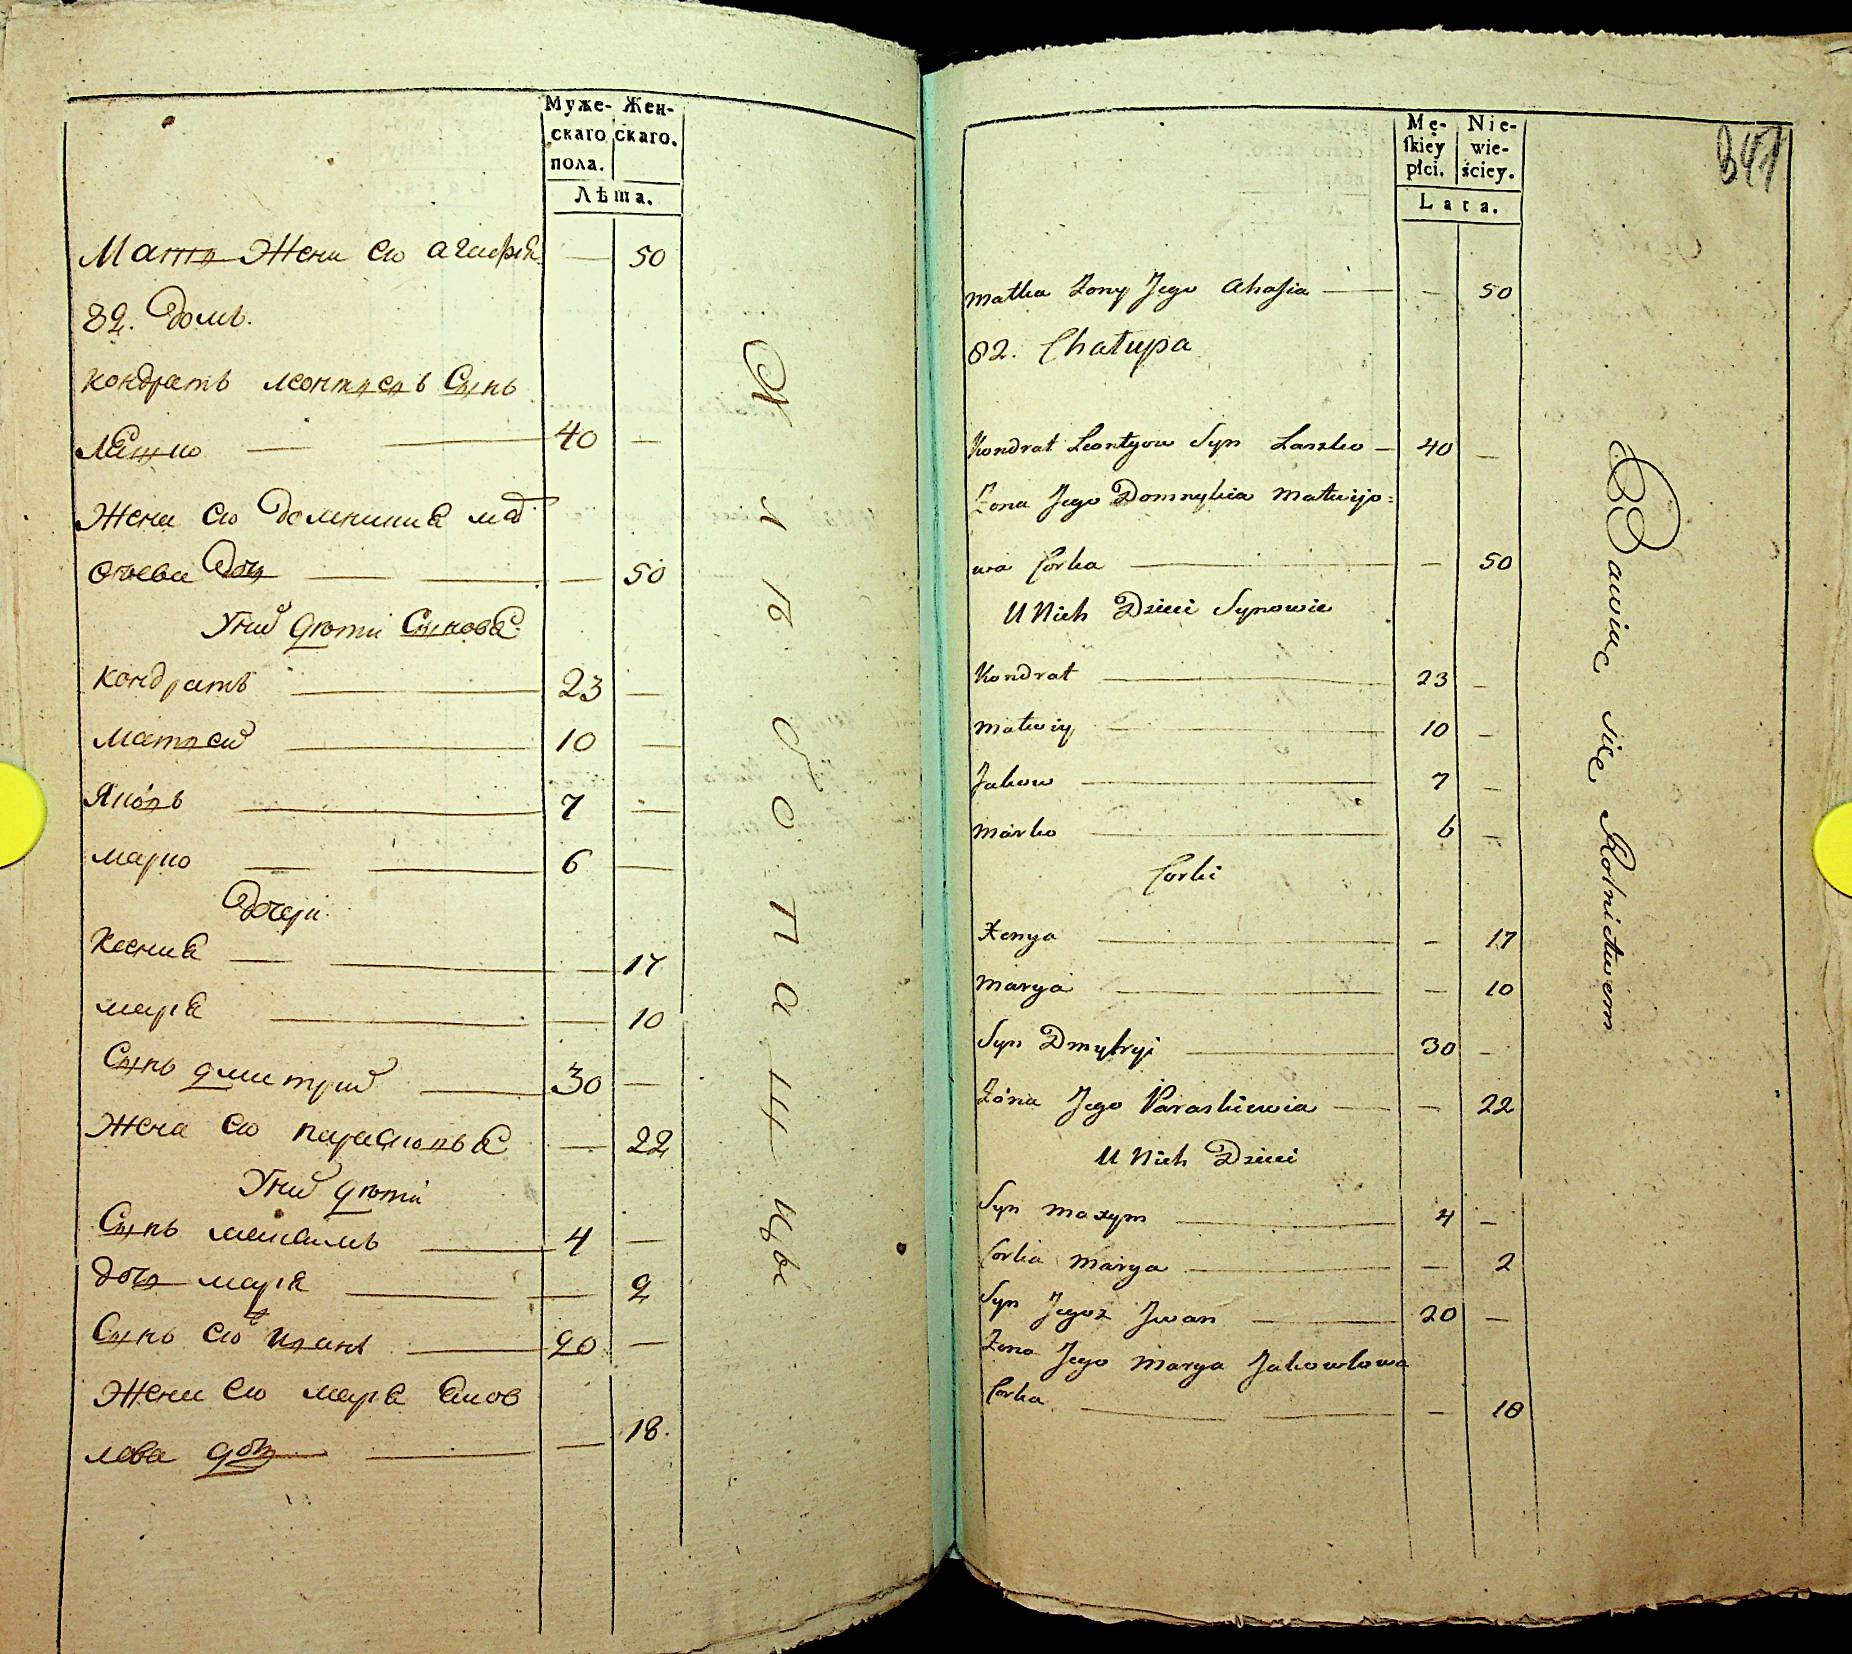 Муже-
скаго
пола.
Жен-
скаго.
Лѣта.
Мати Жени его Агафія — 50
82. Домъ.
Кондратъ Леонтиевъ Синъ
Ляшко — 40 —
Жена его Доменикия мат
феева Дочь — — 50
У нихъ дѣти Синовя
Кондратъ — 23 —
Матвей — 10 —
Яковъ — 7 —
Марко — 6 —
Дочери
Ксения — — 17
Мария — — 10
Синъ Дмитрий — 30 —
Жена его Парасковья — 22
У нихъ дѣти
Синъ Максимъ — 4 —
Дочь Мария — — 2
Синъ его Иванъ — 20 —
Жена его Мария Яков
лева дочь — — 18.
Хлѣбопашцы
Mę-
skiey
płci.
Nie-
wie-
ściey.
Lata.
341
Matka Zony Jego Ahafia — — 50
82. Chałupa
Kondrat Leontyow Syn Laszko — 40 —
Zona Jego Domnykia Matwijo=
wa Corka — — 50
U Nich Dzieci Synowie
Kondrat — 23 —
Matwiy — 10 —
Jakow — 7 —
Marko — 6 —
Corki
Xenya — — 17
Marya — — 10
Syn Dmytryi — 30 —
Zona Jego Paraskiewia — — 22
U Nich Dzieci
Syn Maxym — 4 —
Corka Marya — — 2
Syn Jegoz Jwan — 20 —
Zona Jego Marya Jakowlowa
Corka — — 18
Bawiąc się Rolnictwem